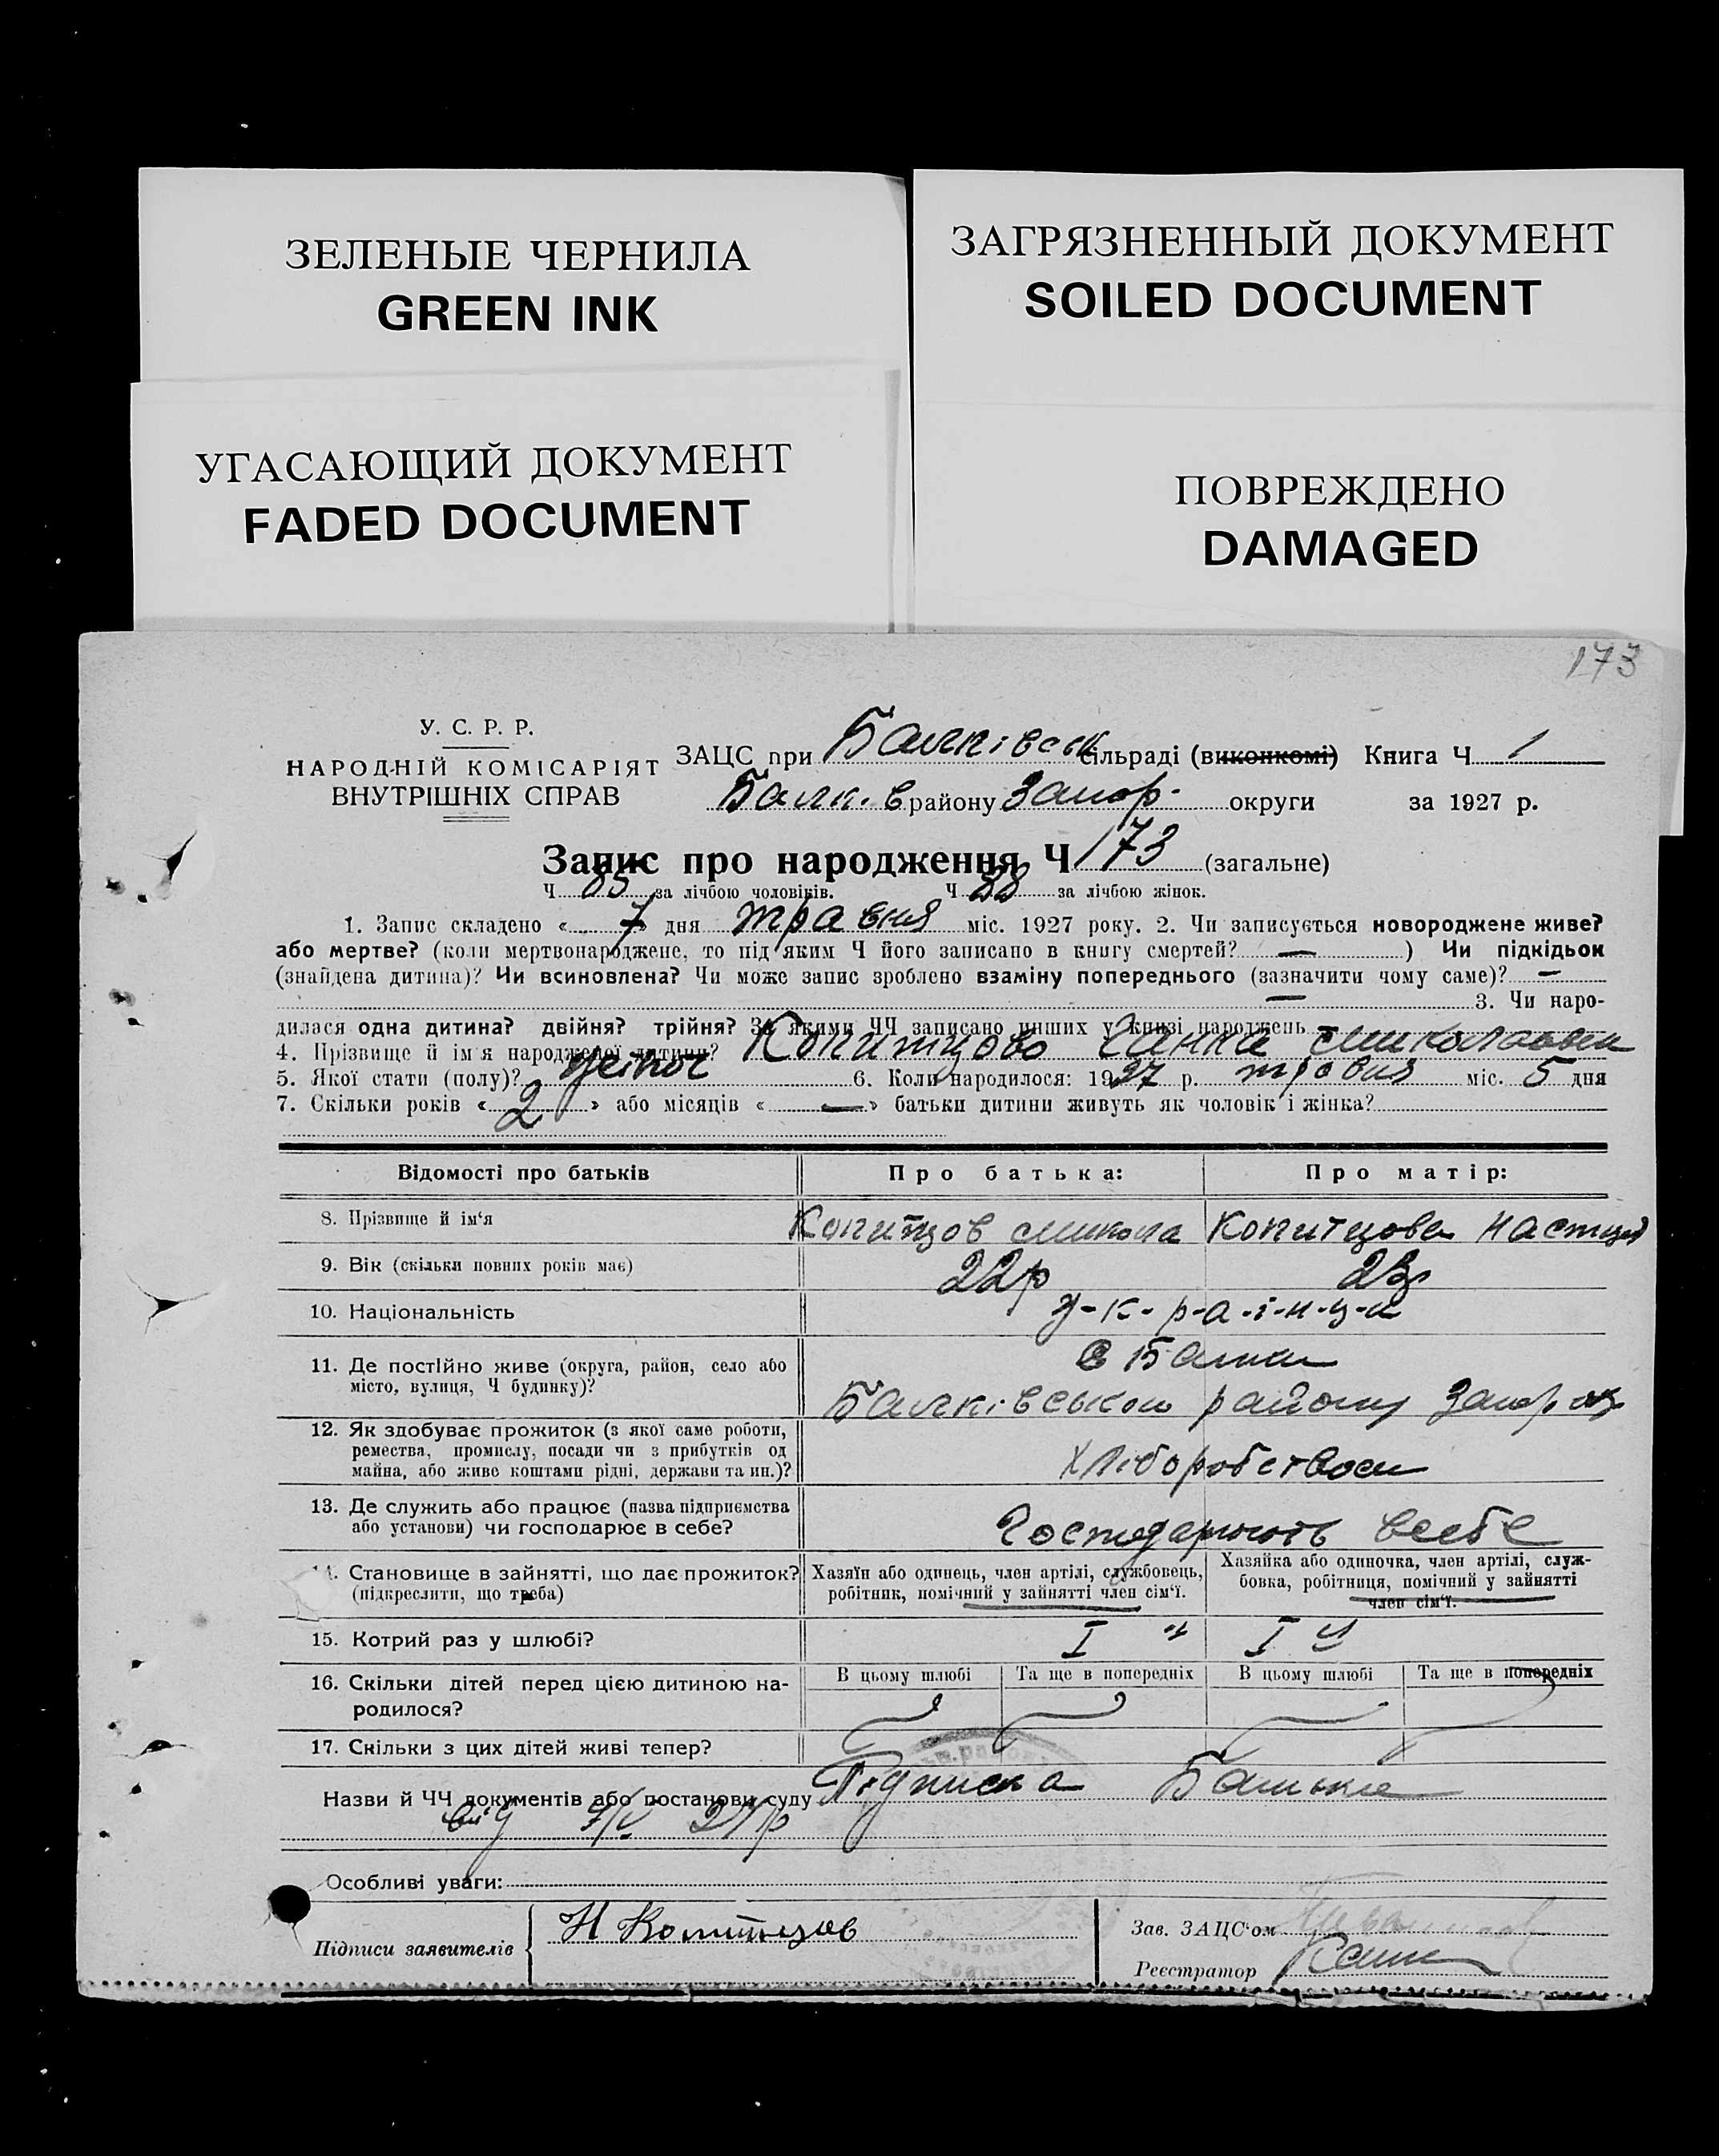 ЗЕЛЕНЫЕ ЧЕРНИЛА
GREEN INK
ЗАГРЯЗНЕННЫЙ ДОКУМЕНТ
SOILED DOCUMENT
УГАСАЮЩИЙ ДОКУМЕНТ
FADED DOCUMENT
ПОВРЕЖДЕНО
DAMAGED
173
У. С. Р. Р.
НАРОДНІЙ КОМІСАРІЯТ
ВНУТРІШНІХ СПРАВ
ЗАЦС при Балківськ сільраді (виконкомі) Книга Ч 1
Балк.в району Запор. округи за 1927 р.
Запис про народження Ч 173 (загальне)
Ч 85 за лічбою чоловіків. Ч 88 за лічбою жінок.
1. Запис складено « 7 » дня травня міс. 1927 року. 2. Чи записується новороджене живе?
або мертве? (коли мертвонароджене, то під яким Ч його записано в книгу смертей? — ) Чи підкідьок
(знайдена дитина)? Чи всиновлена? Чи може запис зроблено взаміну попереднього (зазначити чому саме)? —
— 3. Чи наро-
дилася одна дитина? двійня? трійня? За якими ЧЧ записано инших у книзі народжень
4. Прізвище й ім'я народженої дитини? Копитцова Ганна
5. Якої стати (полу)? жіноч 6. Коли народилося: 1927 р. травня міс. 5 дня
7. Скільки років « 2 » або місяців « — » батьки дитини живуть як чоловік і жінка?
Відомості про батьків Про батька: Про матір:
8. Прізвище й ім'я Копитцов Микола Копитцова Настя
9. Вік (скільки повних років має) 22р 23р
10. Національність у-к-р-а-ї-н-ц-и
11. Де постійно живе (округа, район, село або
місто, вулиця, Ч будинку)?
с Балки
Балківського району Запор ок
12. Як здобуває прожиток (з якої саме роботи,
ремества, промислу, посади чи з прибутків од
майна, або живе коштами рідні, держави та ин.)?
Хліборобством
13. Де служить або працює (назва підприємства
або установи) чи господарює в себе?
Господарюють в себе
14. Становище в зайнятті, що дає прожиток?
(підкреслити, що треба)
Хазяїн або одинець, член артілі, службовець,
робітник, помічний у зайнятті член сім'ї.
Хазяйка або одиночка, член артілі, служ-
бовка, робітниця, помічний у зайнятті
член сім'ї.
15. Котрий раз у шлюбі? I й I й
16. Скільки дітей перед цією дитиною на-
родилося?
В цьому шлюбі Та ще в попередніх В цьому шлюбі Та ще в попередніх
17. Скільки з цих дітей живі тепер?
Назви й ЧЧ документів або постанови суду Підписка Батька
від 7/V 27р
Особливі уваги:
Підписи заявителів Н Копитцов
Зав. ЗАЦС'ом
Реєстратор